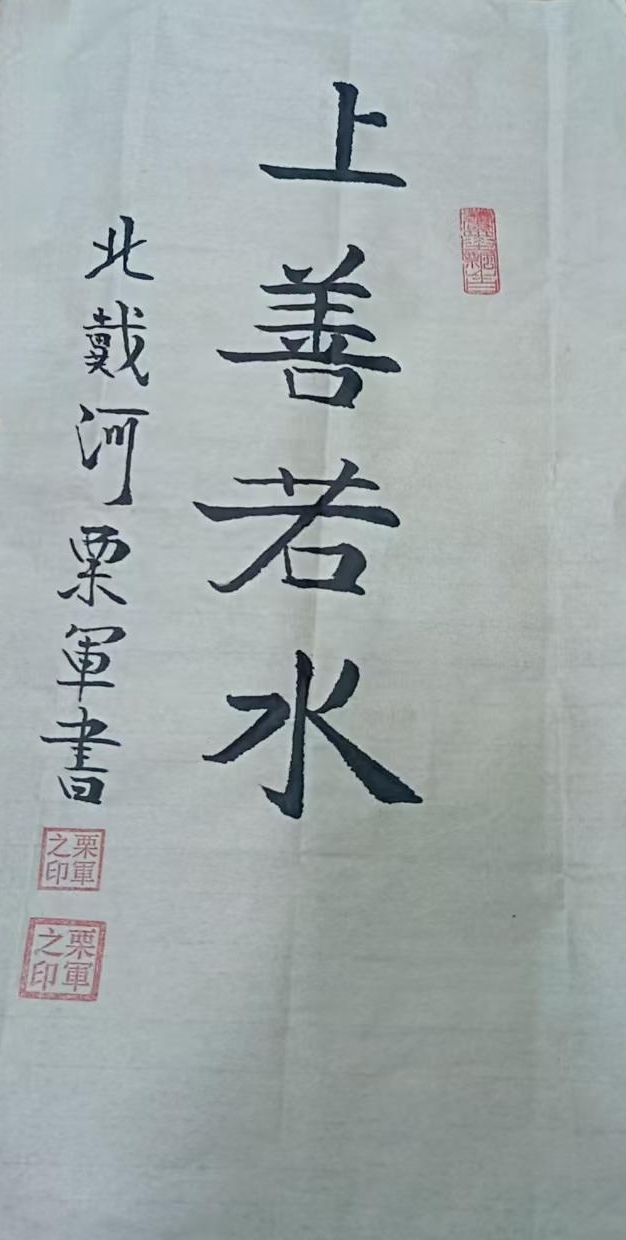 上善若水
北戴河栗軍書
栗軍之印
栗軍之印